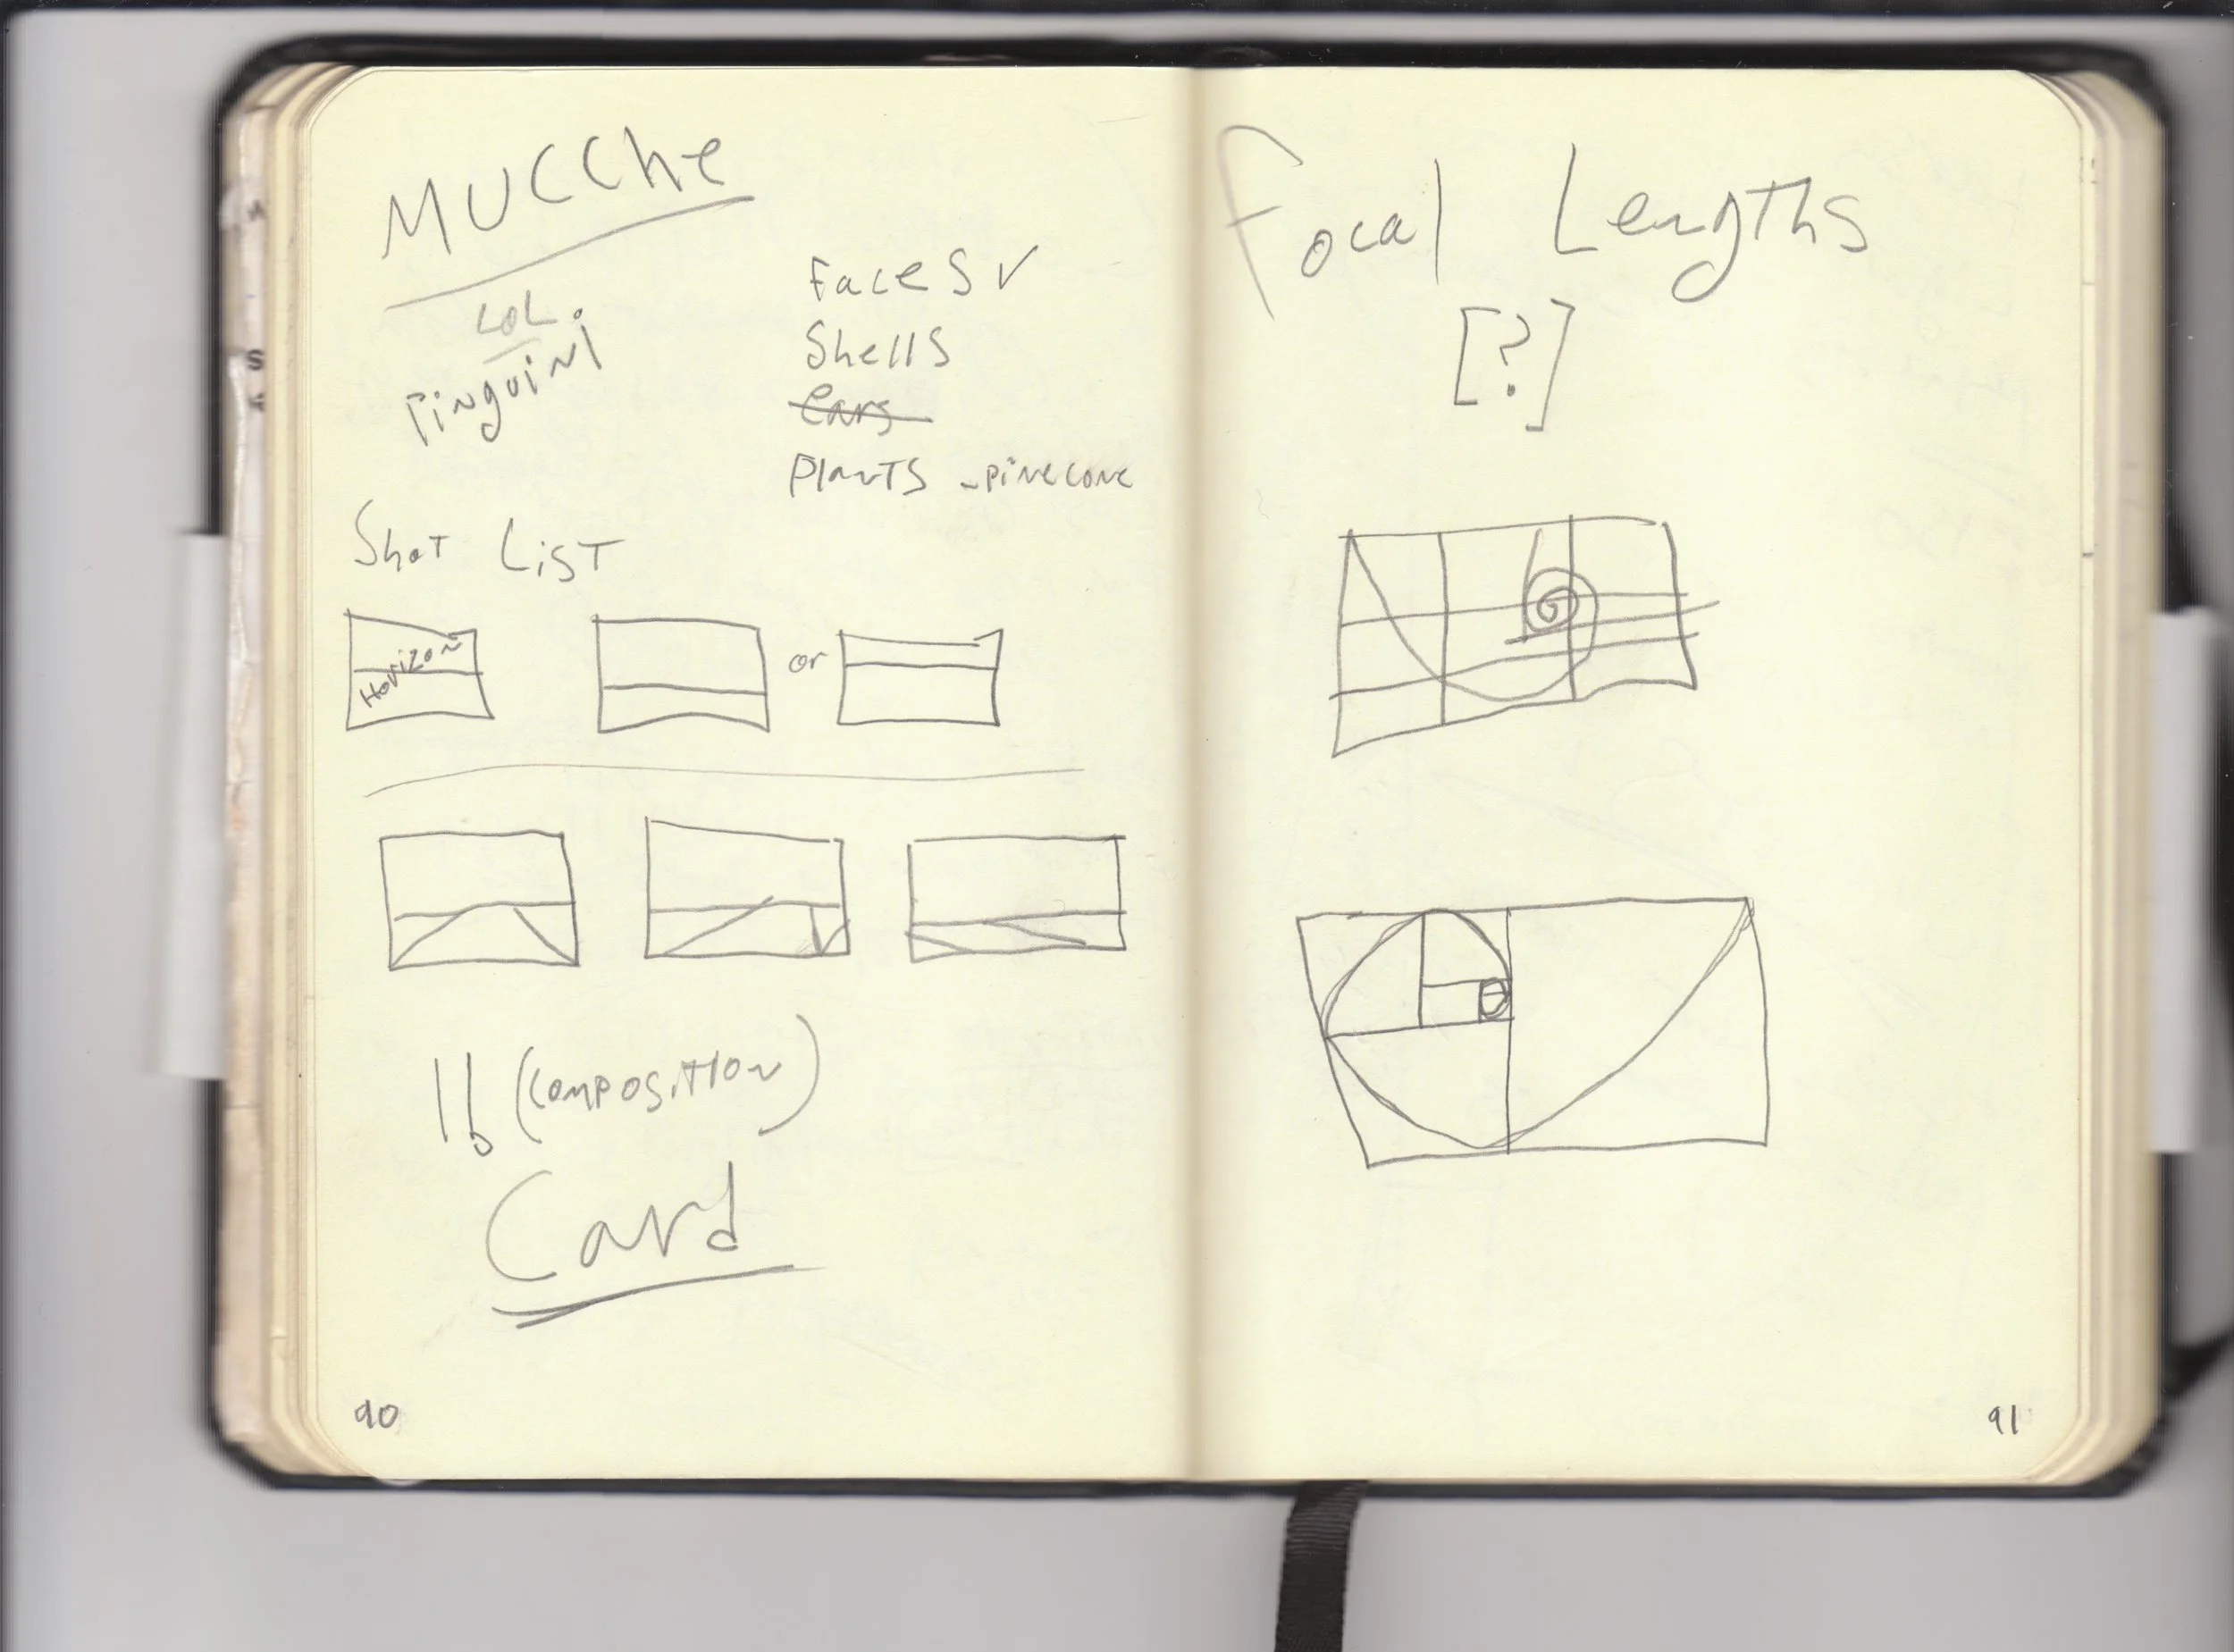 MUCChe
LOL.
Pinguini
Faces ✓
Shells
Ears
Plants - pinecone
Shot List
Horizon
or
(composition)
Card
90
Focal Lengths
[?]
91